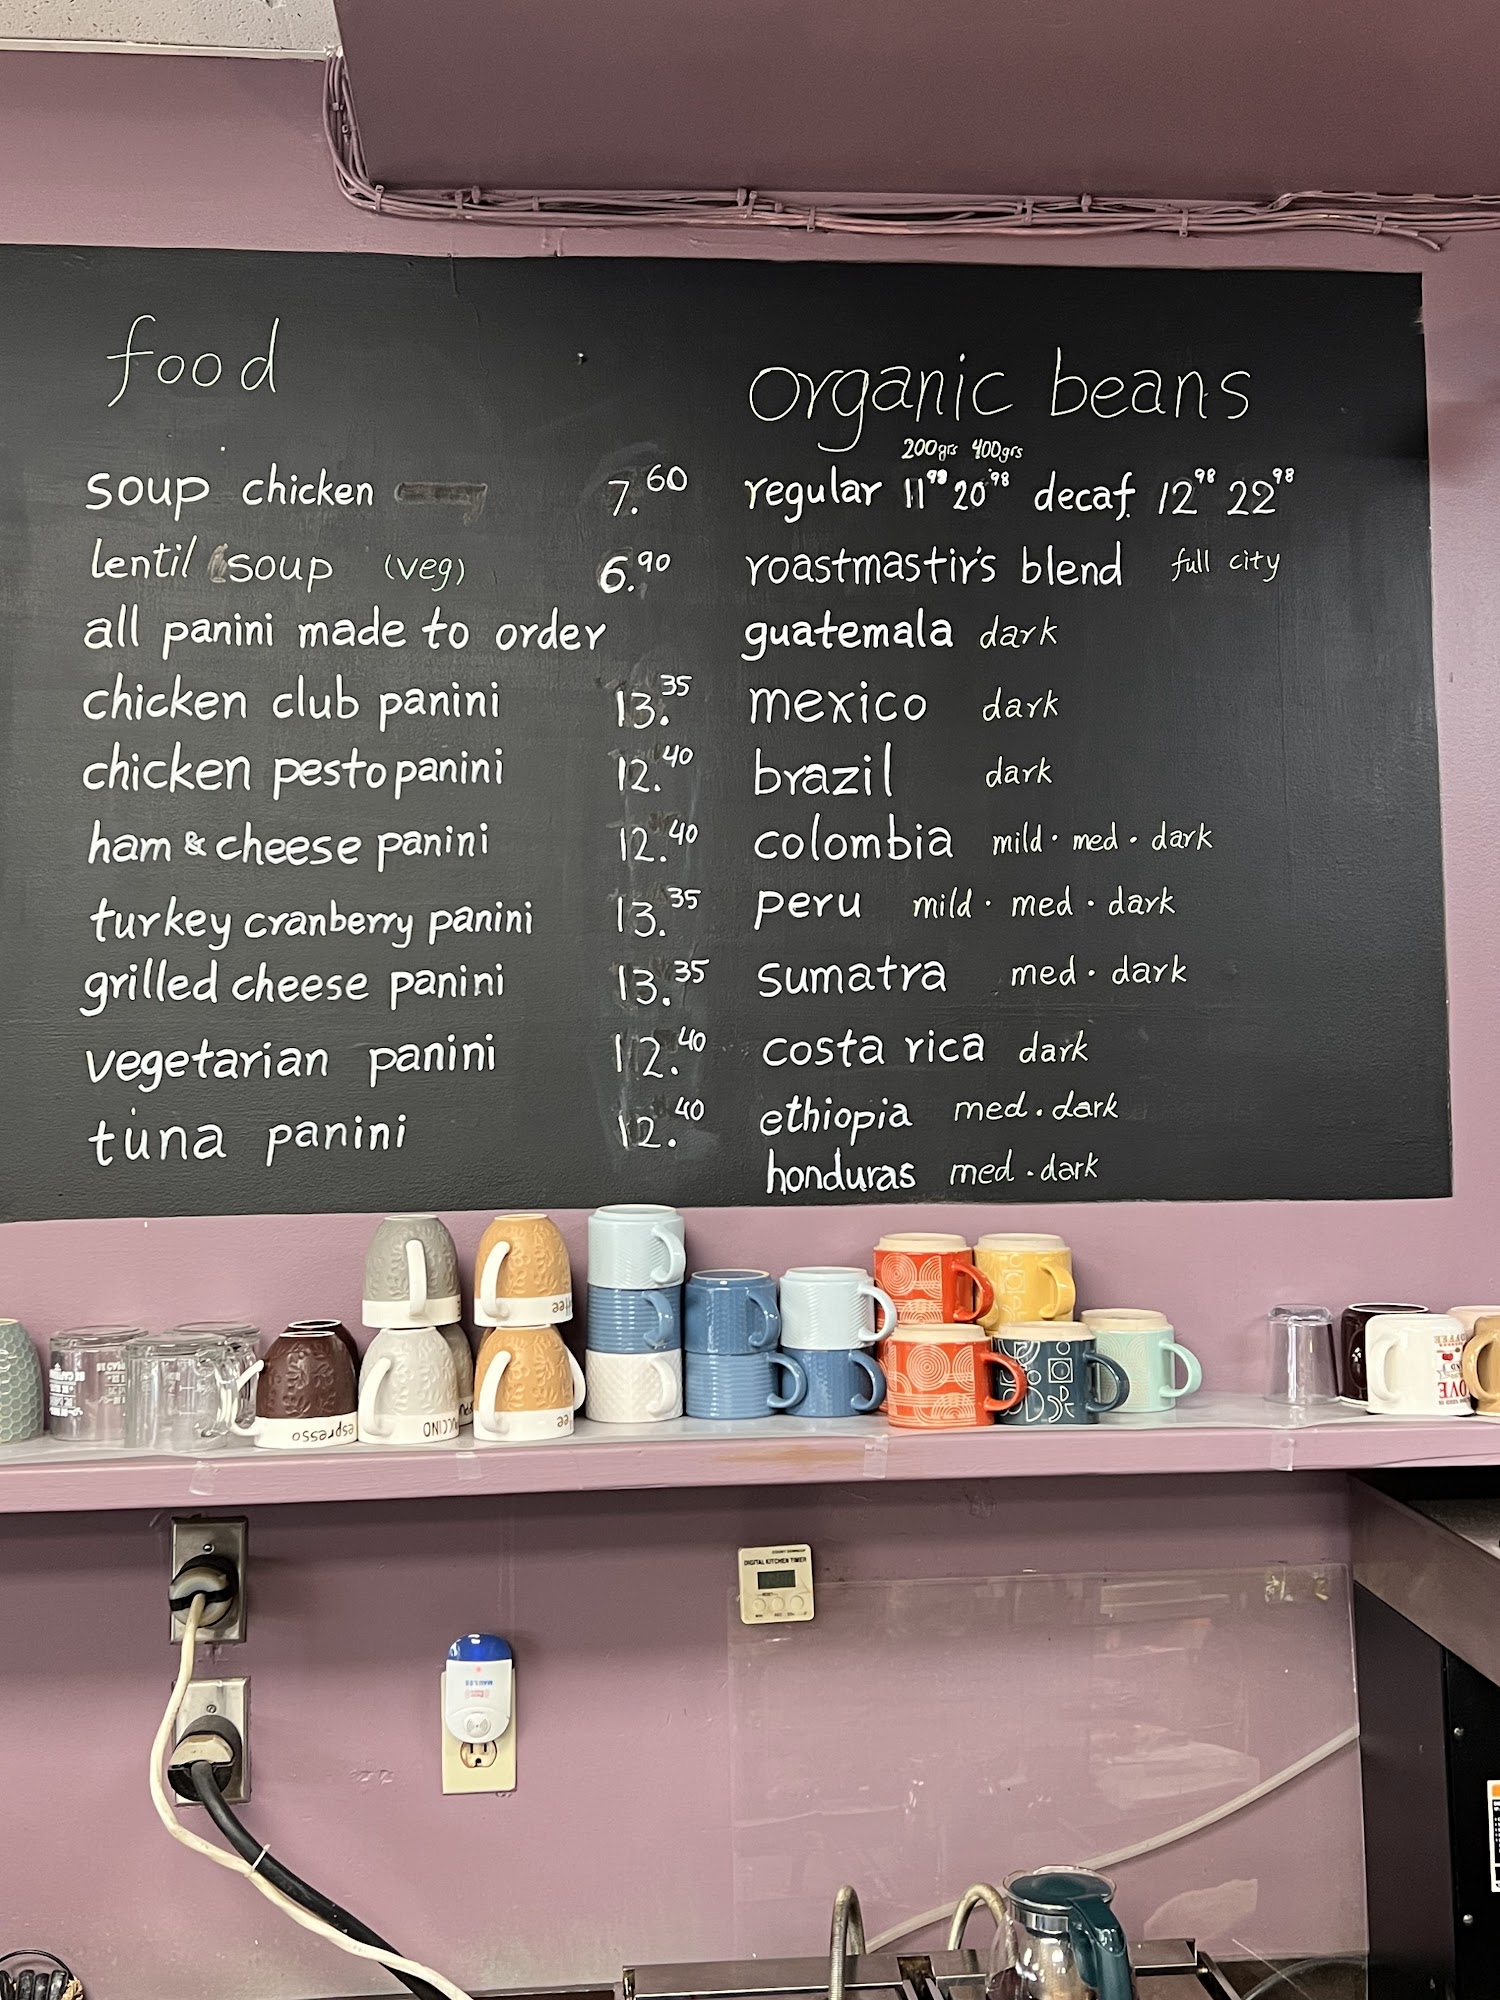 food
soup chicken 7.60
lentil soup (veg) 6.90
all panini made to order
chicken club panini 13.35
chicken pesto panini 12.40
ham & cheese panini 12.40
turkey cranberry panini 13.35
grilled cheese panini 13.35
vegetarian panini 12.40
tuna panini 12.40
organic beans
200grs 400grs
regular 11 98 20 98 decaf 12 98 22 98
roastmastir's blend full city
guatemala dark
mexico dark
brazil dark
colombia mild · med · dark
peru mild · med · dark
sumatra med · dark
costa rica dark
ethiopia med · dark
honduras med · dark
espresso
DIGITAL KITCHEN TIMER